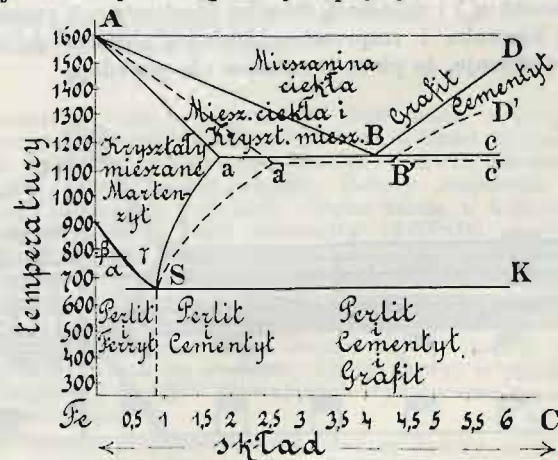 A
1600
1500
1400
1300
1200
1100
1000
900
800
700
600
500
400
300
temperatury
Mieszanina
ciekła
Miesz. ciekła i
Kryszt. miesz.
Grafit
Cementyt
D
D'
B
B'
c
c'
a
a'
Kryształy
mieszane
Marten-
zyt
β
α
γ
S
K
Perlit
i
Ferryt
Perlit
i
Cementyt
Perlit
i
Cementyt
i
Grafit
Fe 0,5 1 1,5 2 2,5 3 3,5 4 4,5 5 5,5 6 C
skład